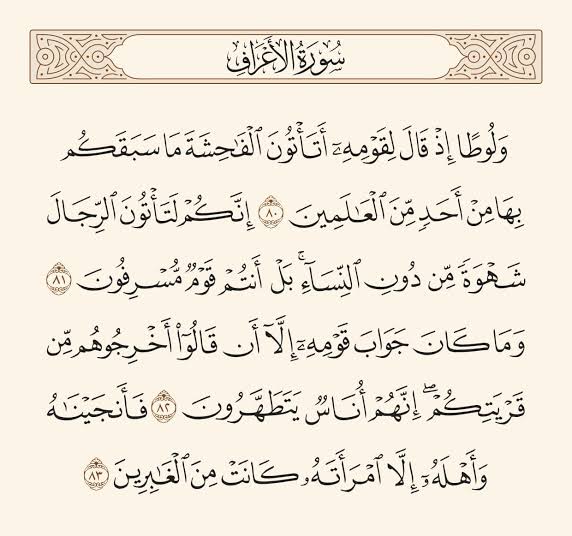 سُورَةُ الأَعْرَافِ
وَلُوطًا إِذْ قَالَ لِقَوْمِهِۦٓ أَتَأْتُونَ ٱلْفَـٰحِشَةَ مَا سَبَقَكُم
بِهَا مِنْ أَحَدٍ مِّنَ ٱلْعَـٰلَمِينَ ٨٠ إِنَّكُمْ لَتَأْتُونَ ٱلرِّجَالَ
شَهْوَةً مِّن دُونِ ٱلنِّسَآءِ ۚ بَلْ أَنتُمْ قَوْمٌ مُّسْرِفُونَ ٨١
وَمَا كَانَ جَوَابَ قَوْمِهِۦٓ إِلَّآ أَن قَالُوٓا۟ أَخْرِجُوهُم مِّن
قَرْيَتِكُمْ ۖ إِنَّهُمْ أُنَاسٌ يَتَطَهَّرُونَ ٨٢ فَأَنجَيْنَـٰهُ
وَأَهْلَهُۥٓ إِلَّا ٱمْرَأَتَهُۥ كَانَتْ مِنَ ٱلْغَـٰبِرِينَ ٨٣